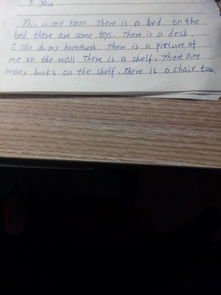 3. You
This is my room. There is a bed. on the
bed there are some toys. There is a desk.
I can do my homework. There is a picture of
me on the wall There is a shelf. There are
many books on the shelf. There is a chair too.